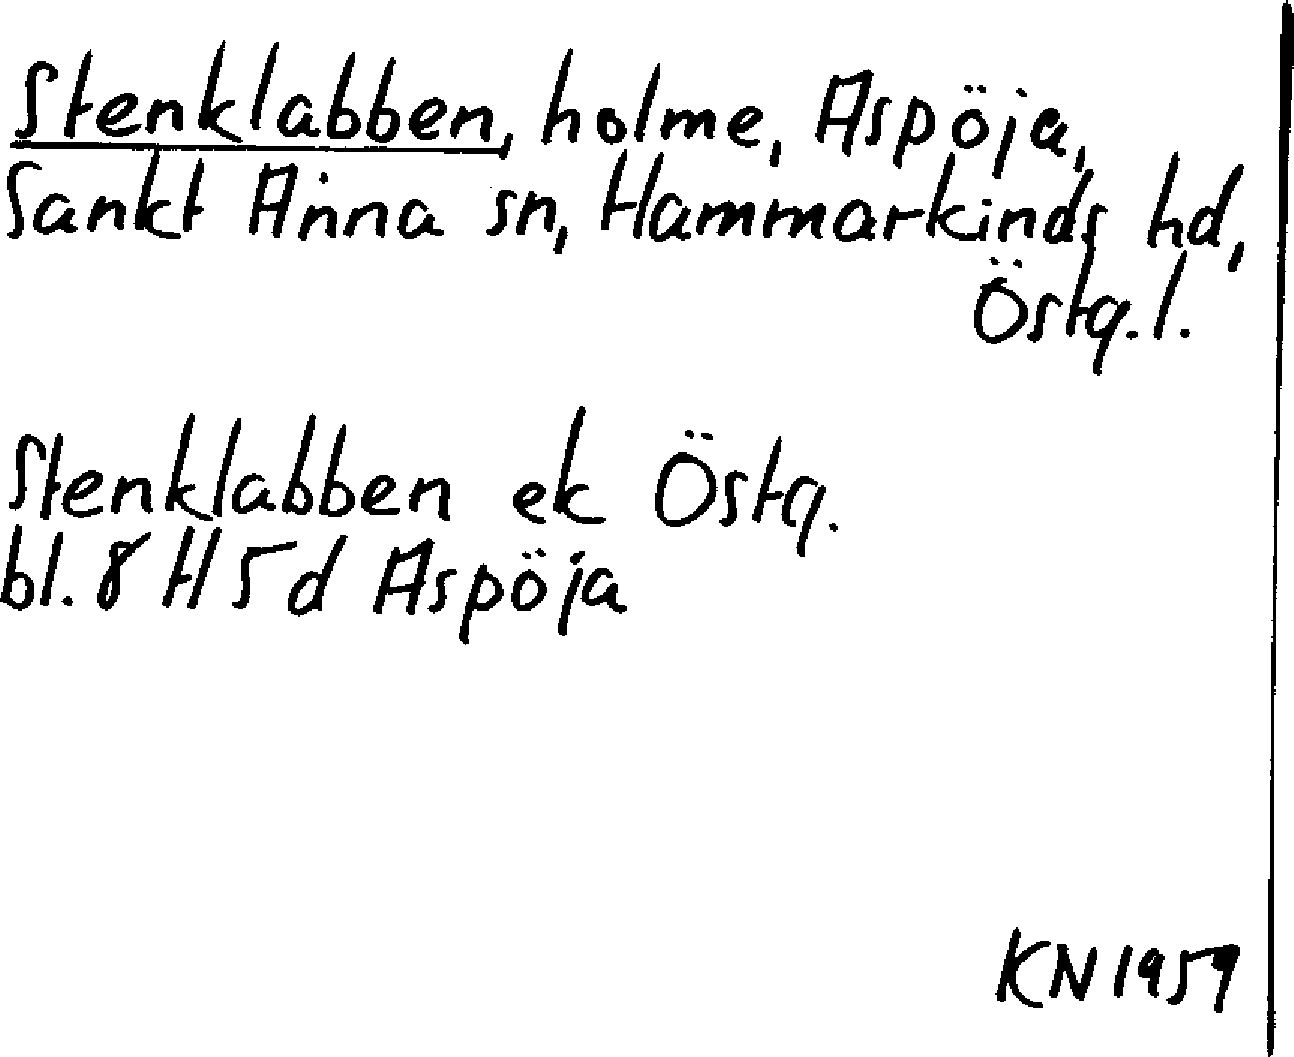 Stenklabben, holme, Aspöja,
Sankt Anna sn, Hammarkinds hd,
Östg. l.
Stenklabben ek Östg.
bl. 8 H 5 d Aspöja
KN 1959